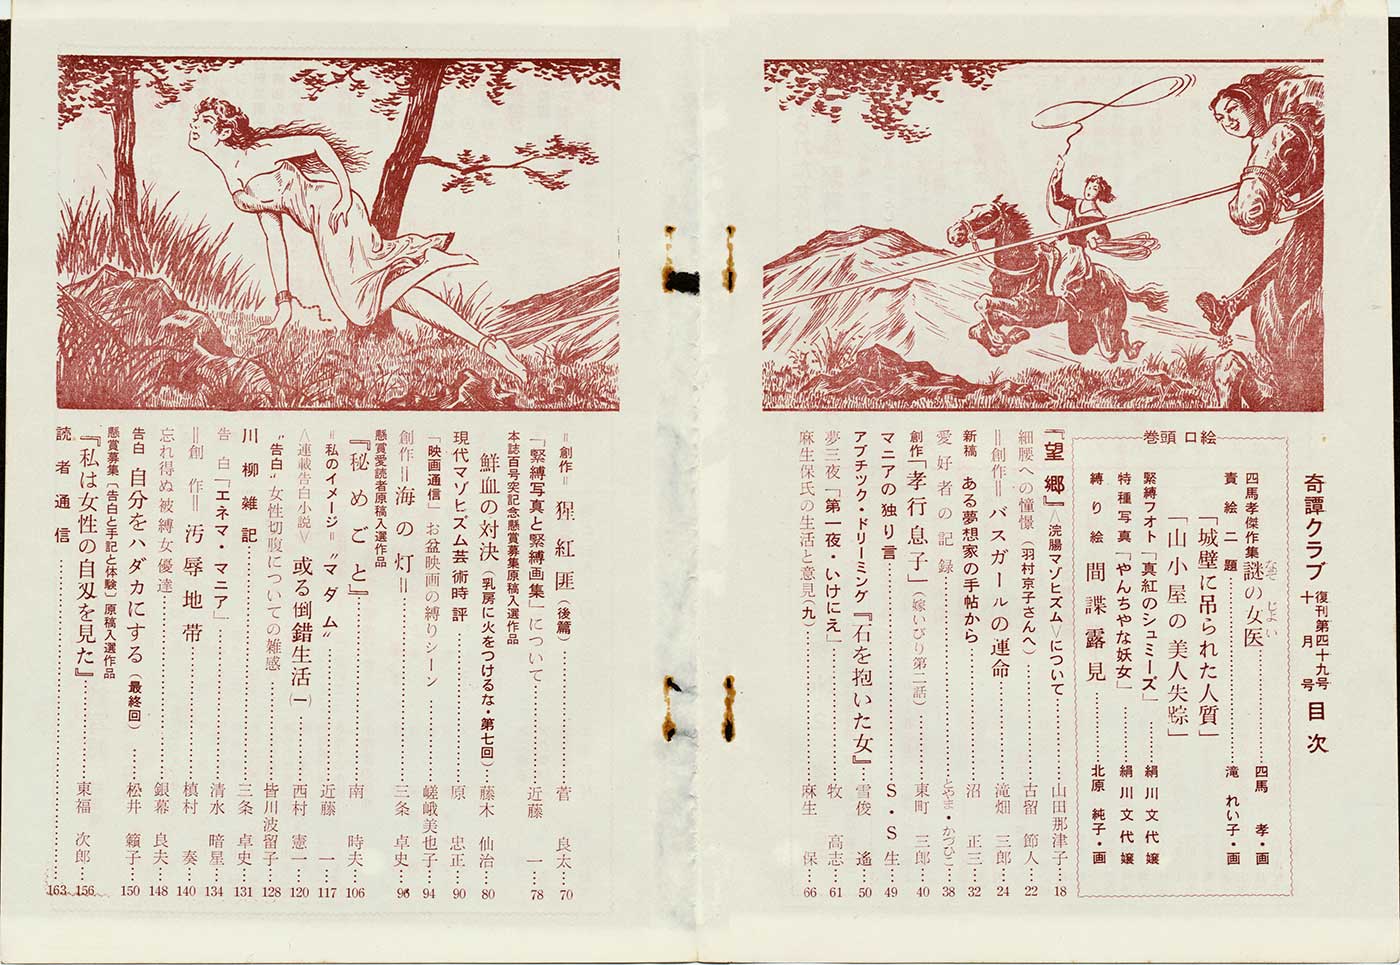 奇譚クラブ 復刊第四十九号 十月号 目次
巻頭口絵
四馬孝傑作集 謎の女医 なぞ じよい
「城壁に吊られた人質」
「山小屋の美人失踪」
四馬 孝・画
責絵二題 滝 れい子・画
緊縛フオト「真紅のシュミーズ」 絹川文代嬢
特種写真「やんちやな妖女」 絹川文代嬢
縛り絵 間諜露見 北原 純子・画
『望郷』＜浣腸マゾヒズム＞について 山田那津子 18
細腰への憧憬（羽村京子さんへ） 古留 節人 22
＝創作＝バスガールの運命 滝畑 三郎 24
新稿 ある夢想家の手帖から 沼 正三 32
愛好者の記録 とやま・かづひこ 38
創作「孝行息子」（嫁いびり第二話） 東町 三郎 40
マニアの独り言 S・S生 49
アブチツク・ドリーミング『石を抱いた女』 雪俊 遙 50
夢三夜「第一夜・いけにえ」 牧 高志 61
麻生保氏の生活と意見（九） 麻生 保 66
＝創作＝ 猩紅匪（後篇） 菅 良太 70
「緊縛写真と緊縛画集」について 近藤 一 78
本誌百号突記念懸賞募集原稿入選作品
鮮血の対決（乳房に火をつけるな・第七回） 藤木 仙治 80
現代マゾヒズム芸術時評 原 忠正 90
「映画通信」お盆映画の縛りシーン 嵯峨美也子 94
創作＝海の灯＝ 三条 卓史 96
懸賞愛読者原稿入選作品
『秘めごと』 南 時夫 106
＝私のイメージ＝〝マダム〟 近藤 一 117
＜連載告白小説＞ 或る倒錯生活（一） 西村 憲一 120
〝告白〟女性切腹についての雑感 皆川波留子 128
川柳雑記 三条 卓史 131
告白「エネマ・マニア」 清水 暗星 134
＝創作＝汚辱地帯 槙村 奏 140
忘れ得ぬ被縛女優達 銀幕 良夫 148
告白 自分をハダカにする（最終回） 松井 籟子 150
懸賞募集〔告白と手記と体験〕原稿入選作品
『私は女性の自刄を見た』 東福 次郎 156
読者通信 163